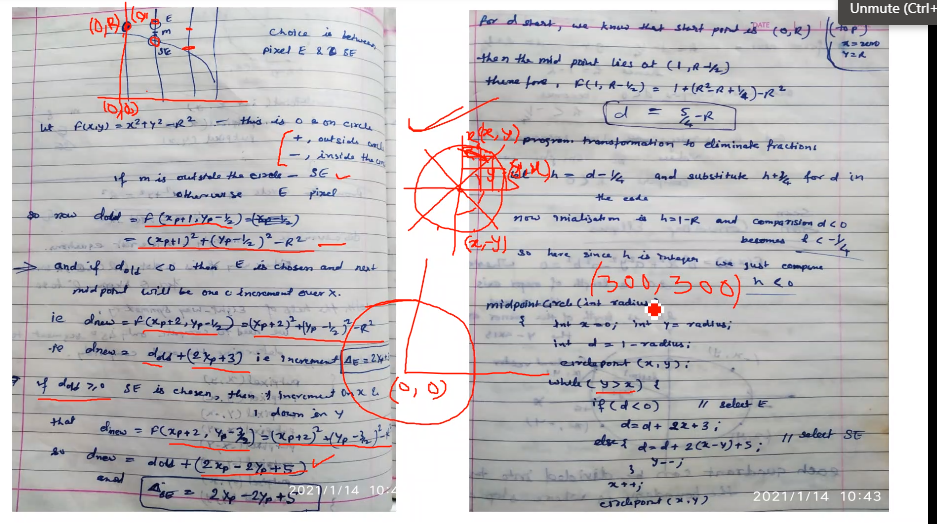 Unmute (Ctrl+
(0,R)
E
m
SE
choice is between
pixel E & SE
(0,0)
let F(x,y) = x²+y²-R² — this is 0 on circle
+, outside circle
-, inside the circle
If m is outside the circle — SE
otherwise E pixel
so now dold = f(xp+1, yp-1/2)
= (xp+1)² + (yp-1/2)² - R²
⇒ and if dold < 0 then E is chosen and next
midpoint will be one increment over x.
ie dnew = f(xp+2, yp-1/2) = (xp+2)² + (yp-1/2)² - R²
ie dnew = dold + (2xp+3) ie increment ΔE = 2xp
if dold ≥ 0 SE is chosen, then increment on x &
down in y
that dnew = f(xp+2, yp-3/2) = (xp+2)² + (yp-3/2)² - R
so dnew = dold + (2xp-2yp+5)
and ΔSE = 2xp-2yp+5
2021/1/14 10:4
(x,y)
(x,-y)
(0, 0)
DATE
for d start, we know that start point is (0,R)
x=zero
y=R
then the mid point lies at (1, R-1/2)
therefore, F(1, R-1/2) = 1+(R²-R+1/4)-R²
d = 5/4 - R
program transformation to eliminate fractions
h = d-1/4 and substitute h+1/4 for d in
the code
now inialisation is h=1-R and comparision d<0
becomes h < -1/4
so here since h is integer we just compare
h < 0
(300, 300)
midpointcircle (int radius
{ int x=0; int y=radius;
int d = 1-radius;
circlepoint (x,y);
while (y>x) {
if (d<0) // select E
d = d+2x+3;
else { d = d+2(x-y)+5; // select SE
y--;
}
x++;
circlepoint (x,y)
2021/1/14 10:43